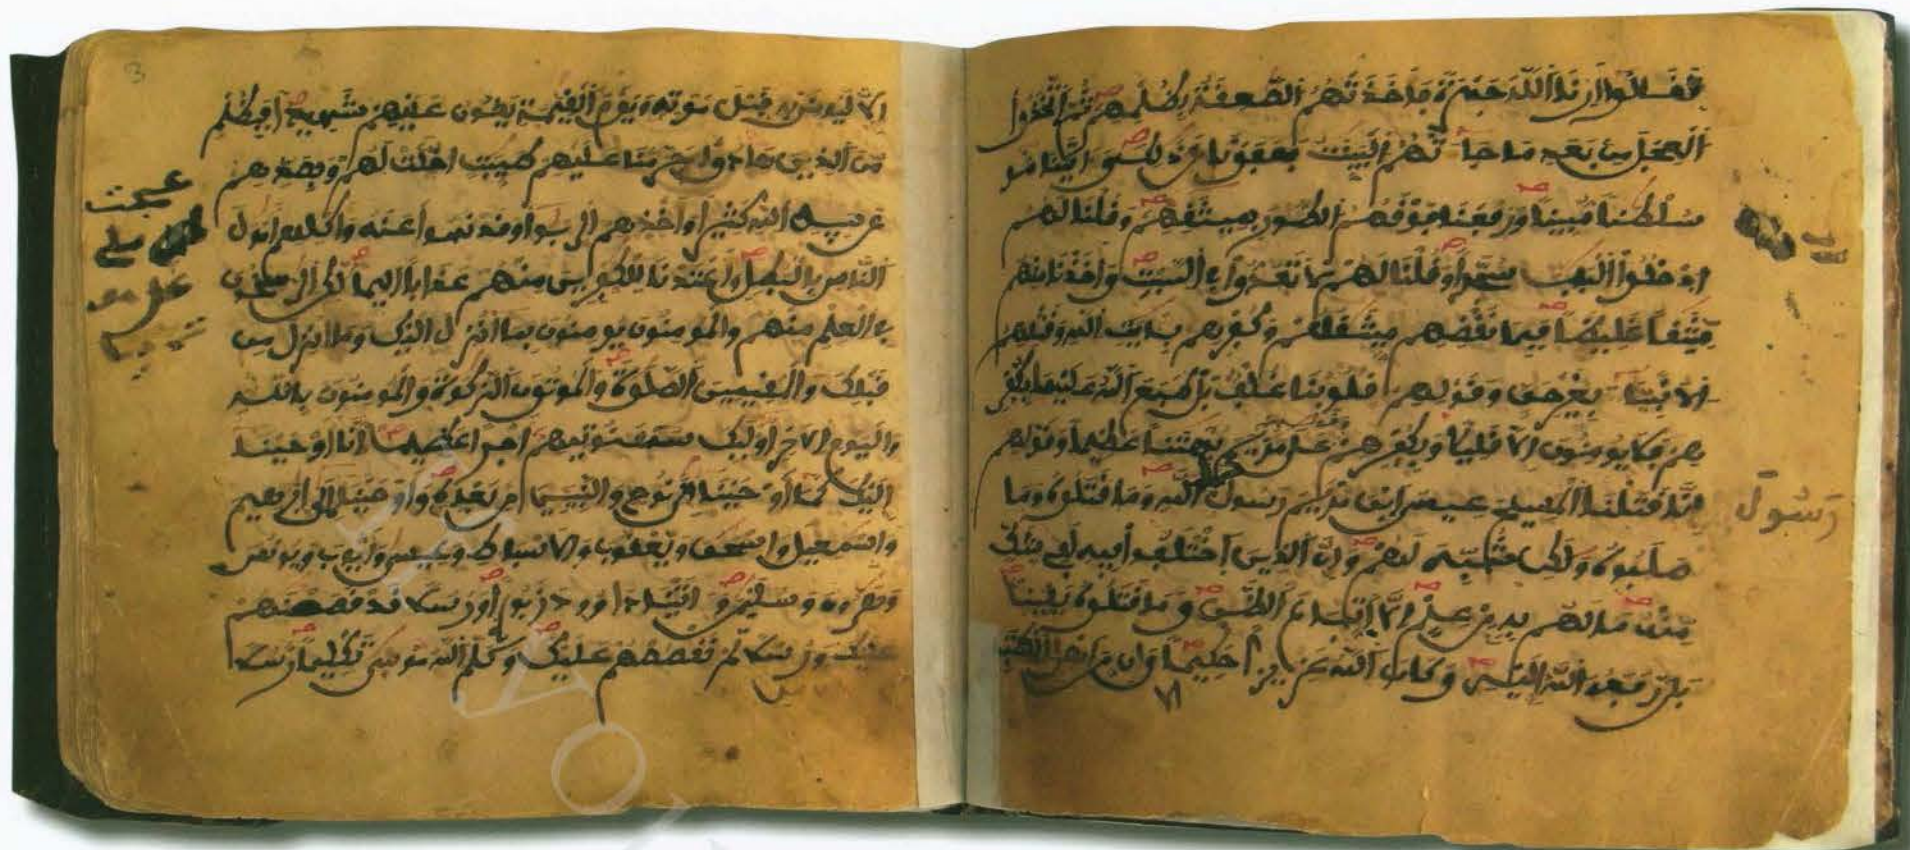 فقالوا ارنا الله جهرة فاخذتهم الصعقة بظلمهم ثم اتخذوا
العجل من بعد ما جاءتهم البينت فعفونا عن ذلك واتينا مو
سى سلطنا مبينا ورفعنا فوقهم الطور بميثقهم وقلنا لهم
ادخلوا الباب سجدا وقلنا لهم لا تعدوا في السبت واخذنا منهم
ميثقا غليظا فبما نقضهم ميثقهم وكفرهم بايت الله وقتلهم
الانبياء بغير حق وقولهم قلوبنا غلف بل طبع الله عليها بكفر
هم فلا يومنون الا قليلا وبكفرهم وقولهم على مريم بهتنا عظيما وقولهم
انا قتلنا المسيح عيسى ابن مريم رسول الله وما قتلوه وما
رسول
صلبوه ولكن شبه لهم وان الذين اختلفوا فيه لفي شك
منه ما لهم به من علم الا اتباع الظن وما قتلوه يقينا
بل رفعه الله اليه وكان الله عزيزا حكيما وان من اهل الكتب
3
الا ليومنن به قبل موته ويوم القيمة يكون عليهم شهيدا فبظلم
من الذين هادوا حرمنا عليهم طيبت احلت لهم وبصدهم
عن سبيل الله كثيرا واخذهم الربوا وقد نهوا عنه واكلهم امول
الناس بالبطل واعتدنا للكفرين منهم عذابا اليما لكن الرسخون
في العلم منهم والمومنون يومنون بما انزل اليك وما انزل من
قبلك والمقيمين الصلوة والموتون الزكوة والمومنون بالله
واليوم الاخر اوليك سنوتيهم اجرا عظيما انا اوحينا
اليك كما اوحينا الى نوح والنبيين من بعده واوحينا الى ابرهيم
واسمعيل واسحق ويعقوب والاسباط وعيسى وايوب ويونس
وهرون وسليمن واتينا داوود زبورا ورسلا قد قصصنهم
عليك ورسلا لم نقصصهم عليك وكلم الله موسى تكليما رسلا